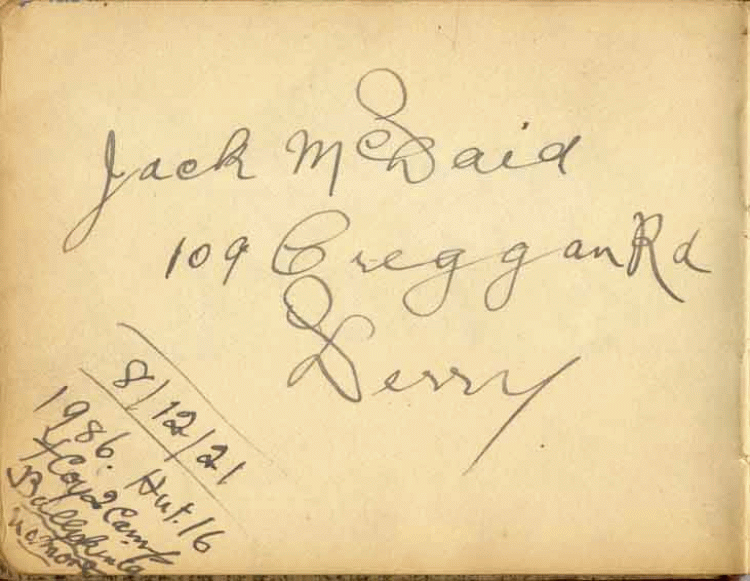 Jack McDaid
109 Creggan Rd
Derry
8/12/21
1986. Hut. 16
Coy 2 Camp
Ballykinlar
no more